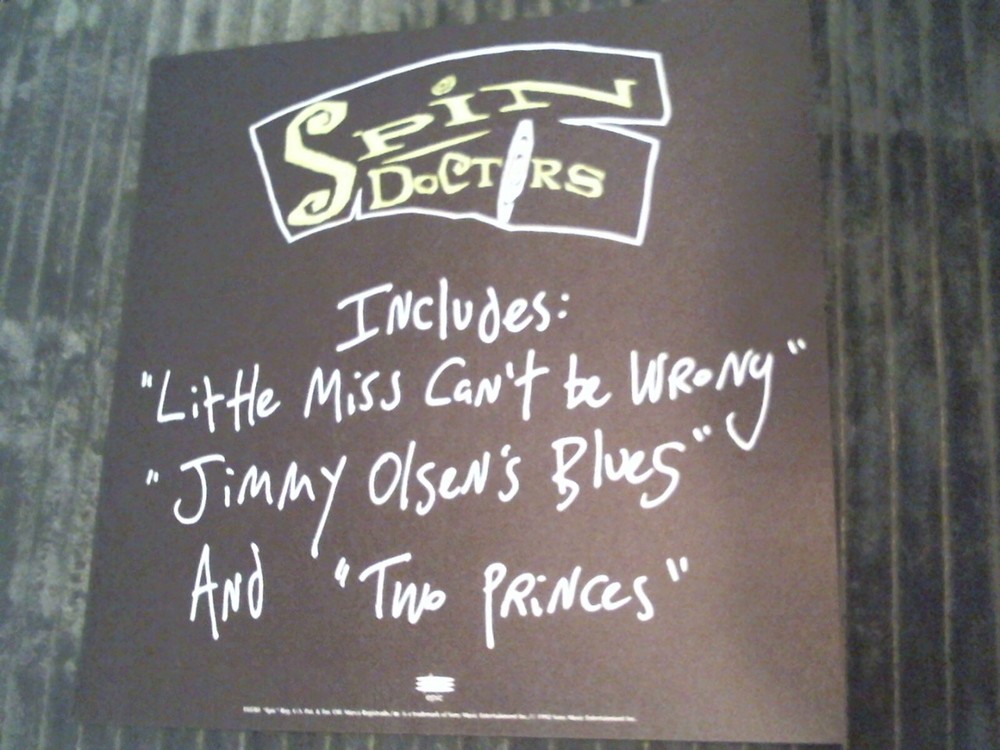 SPIN
DOCTORS
Includes:
"Little Miss Can't be Wrong"
"Jimmy Olsen's Blues"
And "Two Princes"
epic